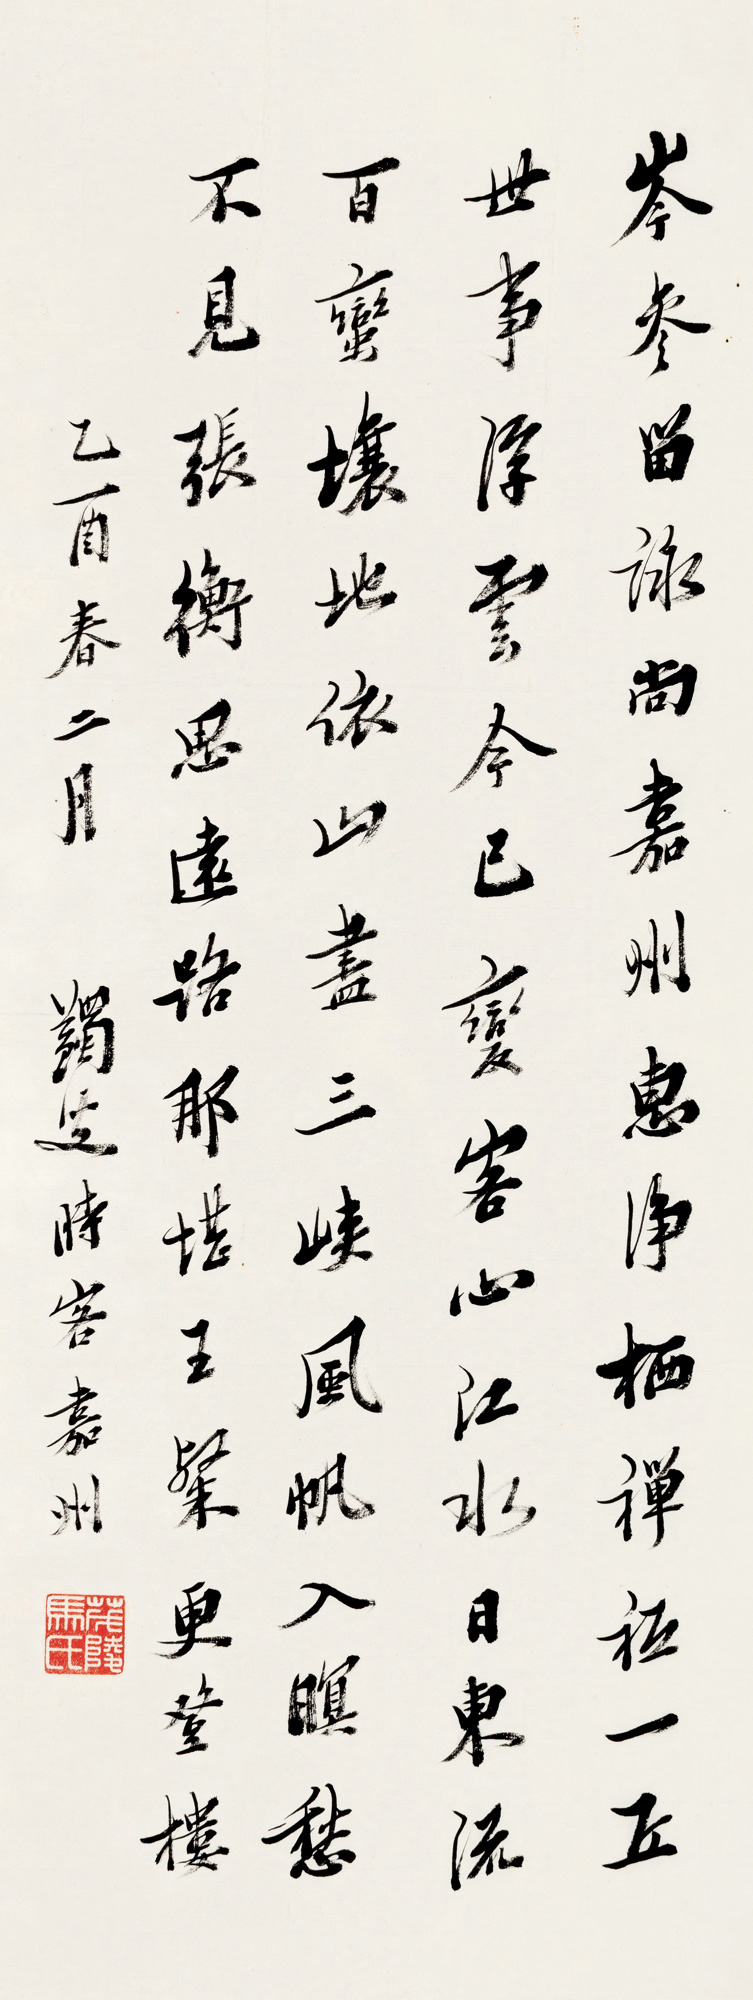 岑參留詠尚嘉州惠淨栖禪祗一丘
世事浮雲今已變客心江水日東流
百蠻壤地依山盡三峽風帆入暝愁
不見張衡思遠路那堪王粲更登樓
乙酉春二月 蠲叟時客嘉州
茂陵馬氏